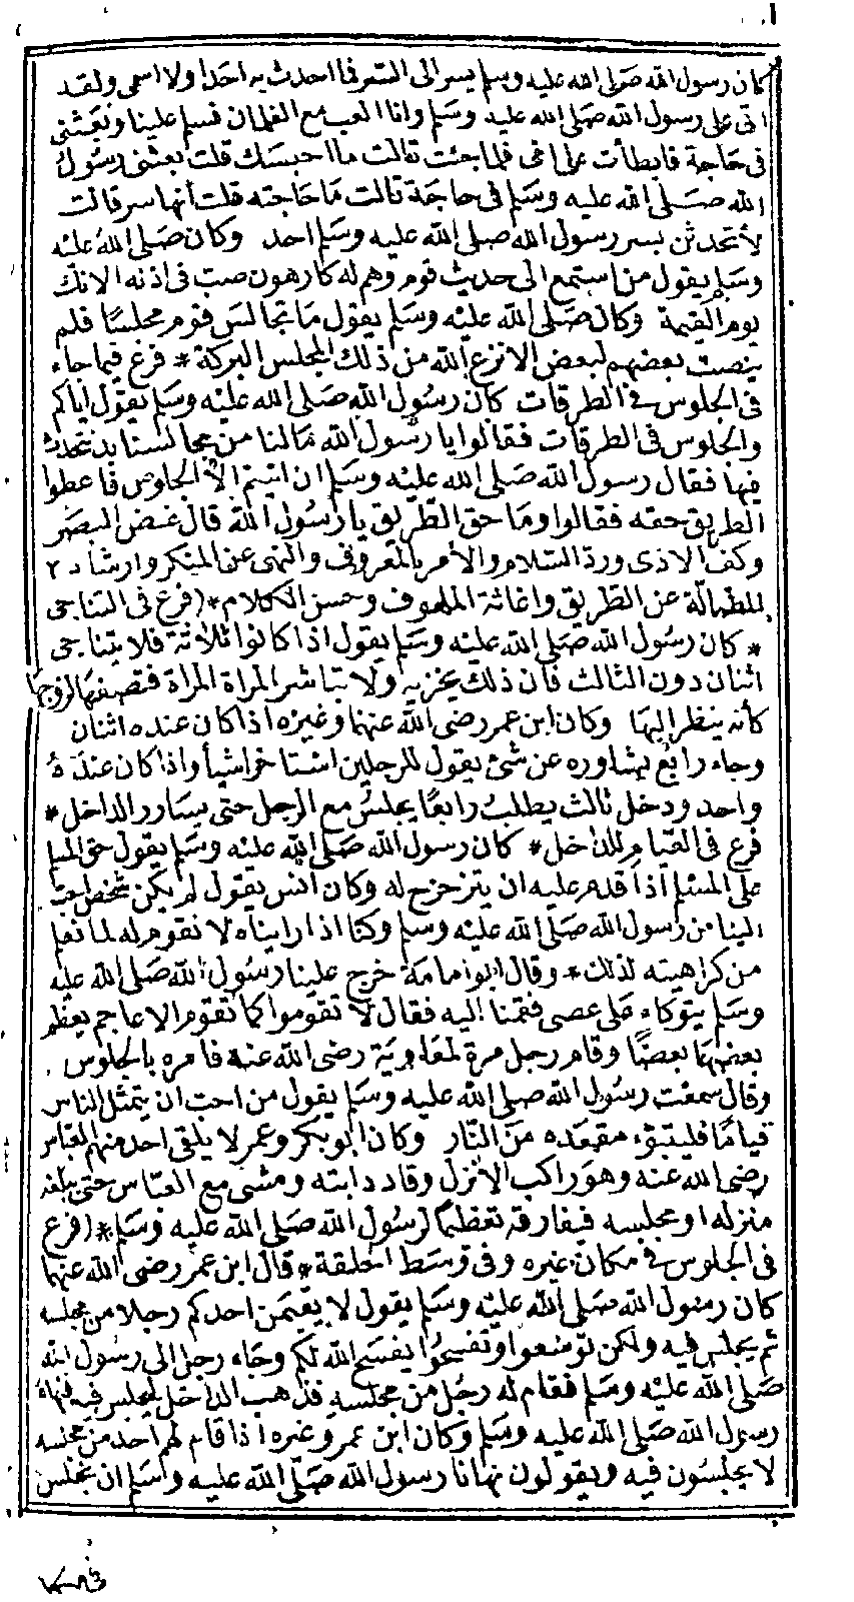 كان رسول الله صلى الله عليه وسلم يسر الى السر فما احدث به احدا ولا اسمى ولقد
اتى على رسول الله صلى الله عليه وسلم وانا العب مع الغلمان فسلم علينا وبعثنى
فى حاجة فابطأت على امى فلما جئت قالت ما احبسك قلت بعثنى رسول
الله صلى الله عليه وسلم فى حاجة قالت ما حاجته قلت انها سر قالت
لا تحدثن بسر رسول الله صلى الله عليه وسلم احد وكان صلى الله عليه
وسلم يقول من استمع الى حديث قوم وهم له كارهون صب فى اذنه الانك
يوم القيمة وكان صلى الله عليه وسلم يقول ما تجالس قوم مجلسا فلم
ينصت بعضهم لبعض الا نزع الله من ذلك المجلس البركة * فرع فيما جاء
فى الجلوس فى الطرقات كان رسول الله صلى الله عليه وسلم يقول اياكم
والجلوس فى الطرقات فقالوا يا رسول الله مالنا من مجالسنا بد نتحدث
فيها فقال رسول الله صلى الله عليه وسلم ان ابيتم الا الجلوس فاعطوا
الطريق حقه فقالوا وما حق الطريق يا رسول الله قال غض البصر
وكف الاذى ورد السلام والامر بالمعروف والنهى عن المنكر وارشاد ٢
للضالة عن الطريق واغاثة الملهوف وحسن الكلام * (فرع فى التناجى
* كان رسول الله صلى الله عليه وسلم يقول اذا كانوا ثلاثة فلا يتناجى
اثنان دون الثالث فان ذلك يحزنه ولا تباشر المراة المراة فتصفها لزوجها
كأنه ينظر اليها وكان ابن عمر رضى الله عنهما وغيره اذا كان عنده اثنان
وجاء رابع يشاوره عن شئ يقول للرجلين استاخرا شيأ واذا كان عنده
واحد ودخل ثالث يطلب رابعا يجلس مع الرجل حتى يسارر الداخل *
فرع فى القيام للداخل * كان رسول الله صلى الله عليه وسلم يقول حق المسلم
على المسلم اذا قدم عليه ان يتزحزح له وكان انس يقول لم يكن شخص احب
الينا من رسول الله صلى الله عليه وسلم وكنا اذا رايناه لا نقوم له لما نعلم
من كراهيته لذلك * وقال ابو امامة خرج علينا رسول الله صلى الله عليه
وسلم يتوكاء على عصى فقمنا اليه فقال لا تقوموا كما تقوم الاعاجم يعظم
بعضها بعضا وقام رجل مرة لمعاوية رضى الله عنه فامره بالجلوس
وقال سمعت رسول الله صلى الله عليه وسلم يقول من احب ان يتمثل الناس
قياما فليتبوء مقعده من النار وكان ابو بكر وعمر لا يلقى احد منهم العباس
رضى الله عنه وهو راكب الا نزل وقاد دابته ومشى مع العباس حتى بلغه
منزله او مجلسه فيفارقه تعظيما لرسول الله صلى الله عليه وسلم * (فرع
فى الجلوس فى مكان غيره وفى وسط الحلقة * قال ابن عمر رضى الله عنهما
كان رسول الله صلى الله عليه وسلم يقول لا يقيمن احدكم رجلا من مجلسه
ثم يجلس فيه ولكن توسعوا وتفسحوا يفسح الله لكم وجاء رجل الى رسول الله
صلى الله عليه وسلم فقام له رجل من مجلسه فذهب الداخل ليجلس فيه فنهاه
رسول الله صلى الله عليه وسلم وكان ابن عمر وغيره اذا قام لهم احد من مجلسه
لا يجلسون فيه ويقولون نهانا رسول الله صلى الله عليه وسلم ان نجلس